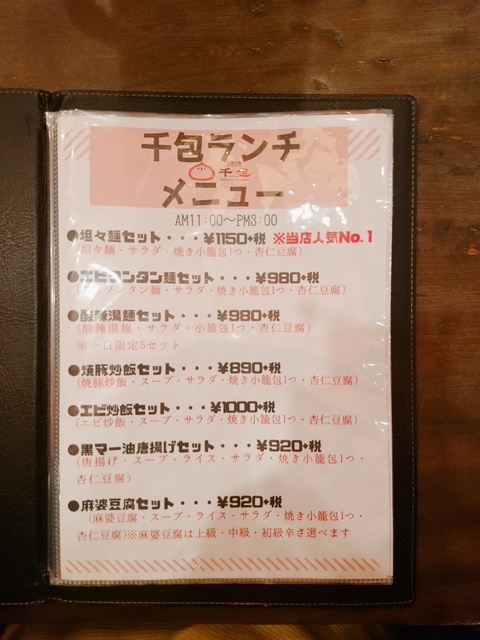 千包ランチ
千包
メニュー
AM11:00〜PM3:00
●坦々麺セット・・・¥1150+税 ※当店人気No.1
(坦々麺・サラダ・焼き小籠包1つ・杏仁豆腐)
●エビワンタン麺セット・・・¥980+税
ワンタン麺・サラダ・焼き小籠包1つ・杏仁豆腐)
●酸辣湯麺セット・・・¥980+税
(酸辣湯麺・サラダ・小籠包1つ・杏仁豆腐)
※一日限定5セット
●焼豚炒飯セット・・・¥890+税
(焼豚炒飯・スープ・サラダ・焼き小籠包1つ・杏仁豆腐)
●エビ炒飯セット・・・¥1000+税
(エビ炒飯・スープ・サラダ・焼き小籠包1つ・杏仁豆腐)
●黒マー油唐揚げセット・・・¥920+税
(唐揚げ・スープ・ライス・サラダ・焼き小籠包1つ・
杏仁豆腐)
●麻婆豆腐セット・・・¥920+税
(麻婆豆腐・スープ・ライス・サラダ・焼き小籠包1つ・
杏仁豆腐)※麻婆豆腐は上級・中級・初級辛さ選べます